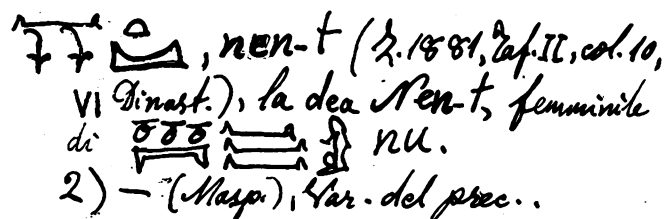 , nen-t (Z. 1881, Taf. II, col. 10,
VI Dinast.), la dea Nen-t, femminile
di nu.
2) — (Masp.), Var. del prec..